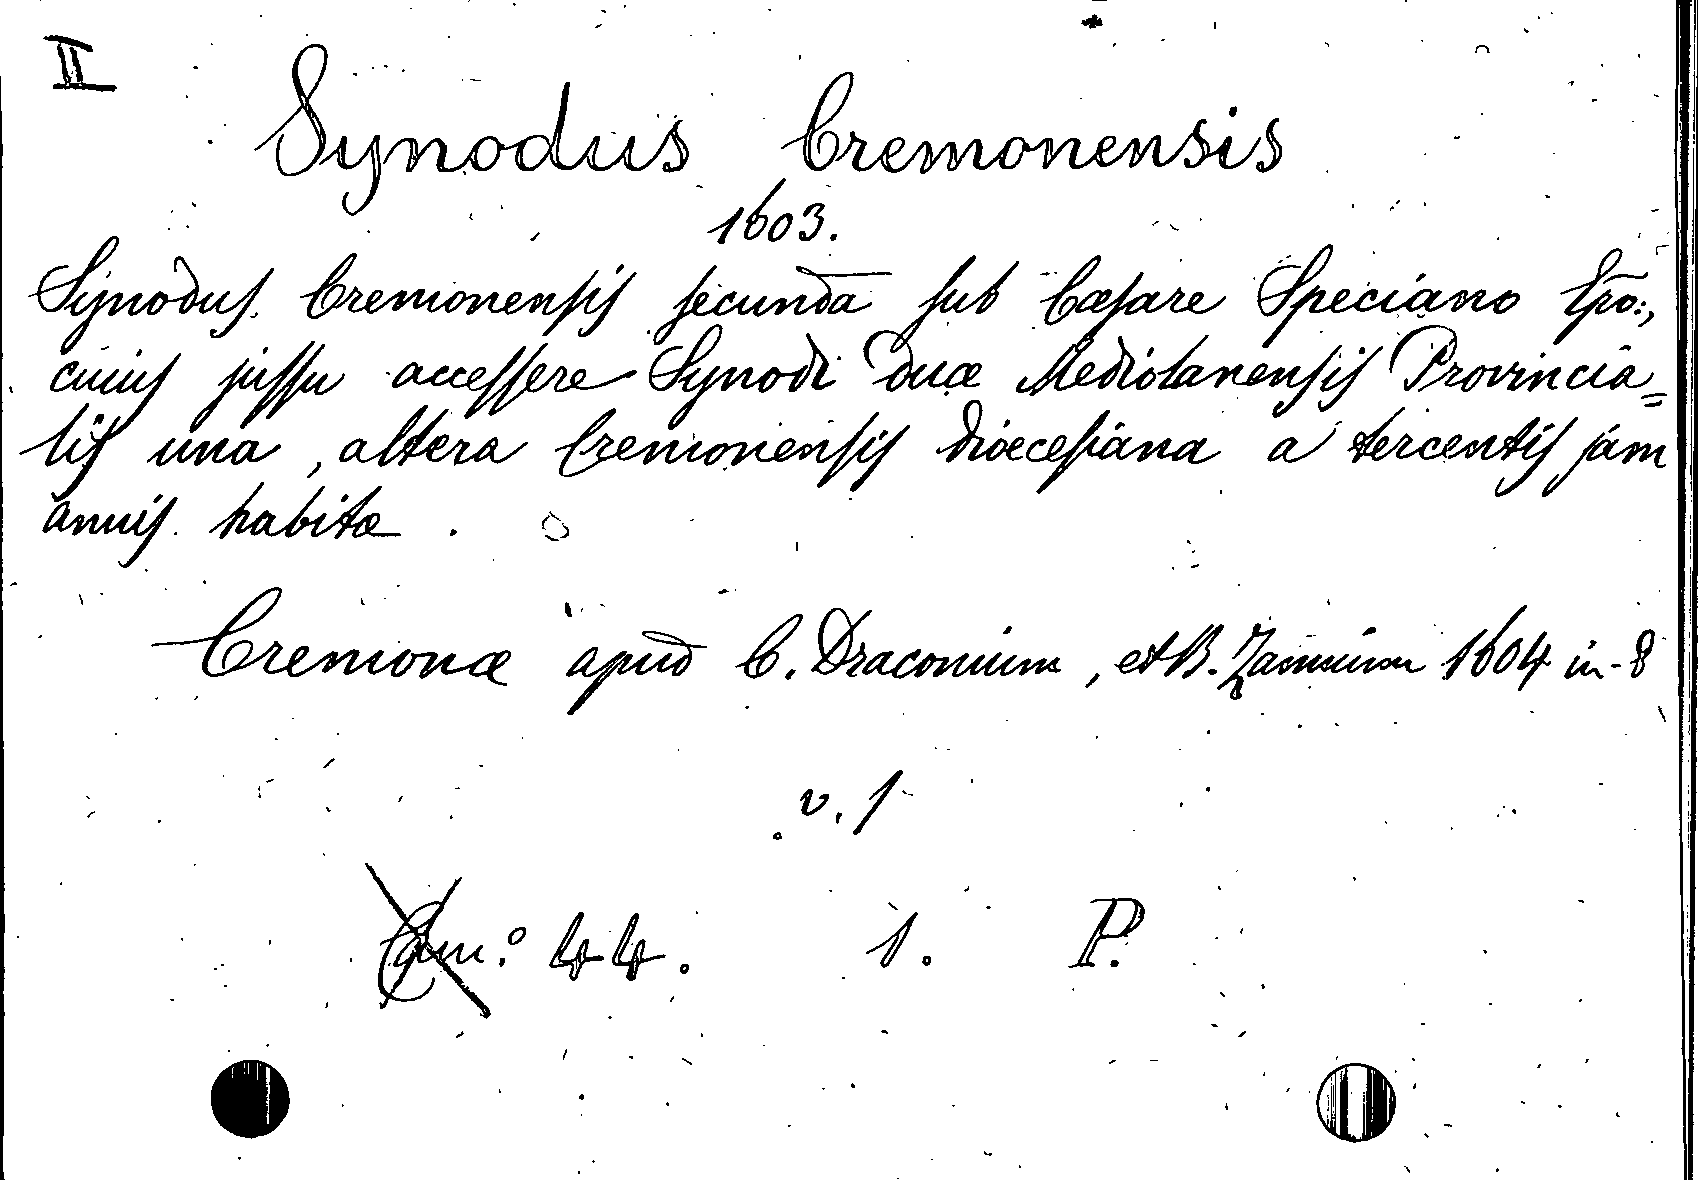 II
Synodus Cremonensis
1603.
Synodus Cremonensis secunda sub Cæsare Speciano Epo:,
cuius jussu accessere Synodi duæ Mediolanensis Provincia=
lis una, altera Cremonensis diœcesiana a tercentis jam
annis habitæ.
Cremonæ apud C. Draconium, et B. Zannium 1604 in-8
v. 1
44. 1. P.